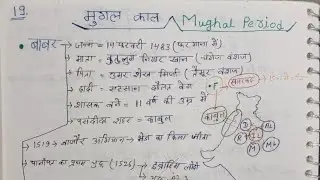 19.
मुगल काल Mughal Period
बाबर
जन्म = 14 फरवरी 1483 (फरगाना में)
माता = कुतुलुग निगार खान (चंगेज वंशज)
पिता = उमर शेख मिर्जा (तैमूर वंशज)
दादी = एहसान दौलत बेग
शासक बने = 11 वर्ष की उम्र में
पसंदीदा शहर = काबुल
काबुल
1519 → बाजौर अभियान → भेरा का किला जीता
पानीपत का प्रथम युद्ध (1526) → इब्राहिम लोदी
D
A
B
K
M